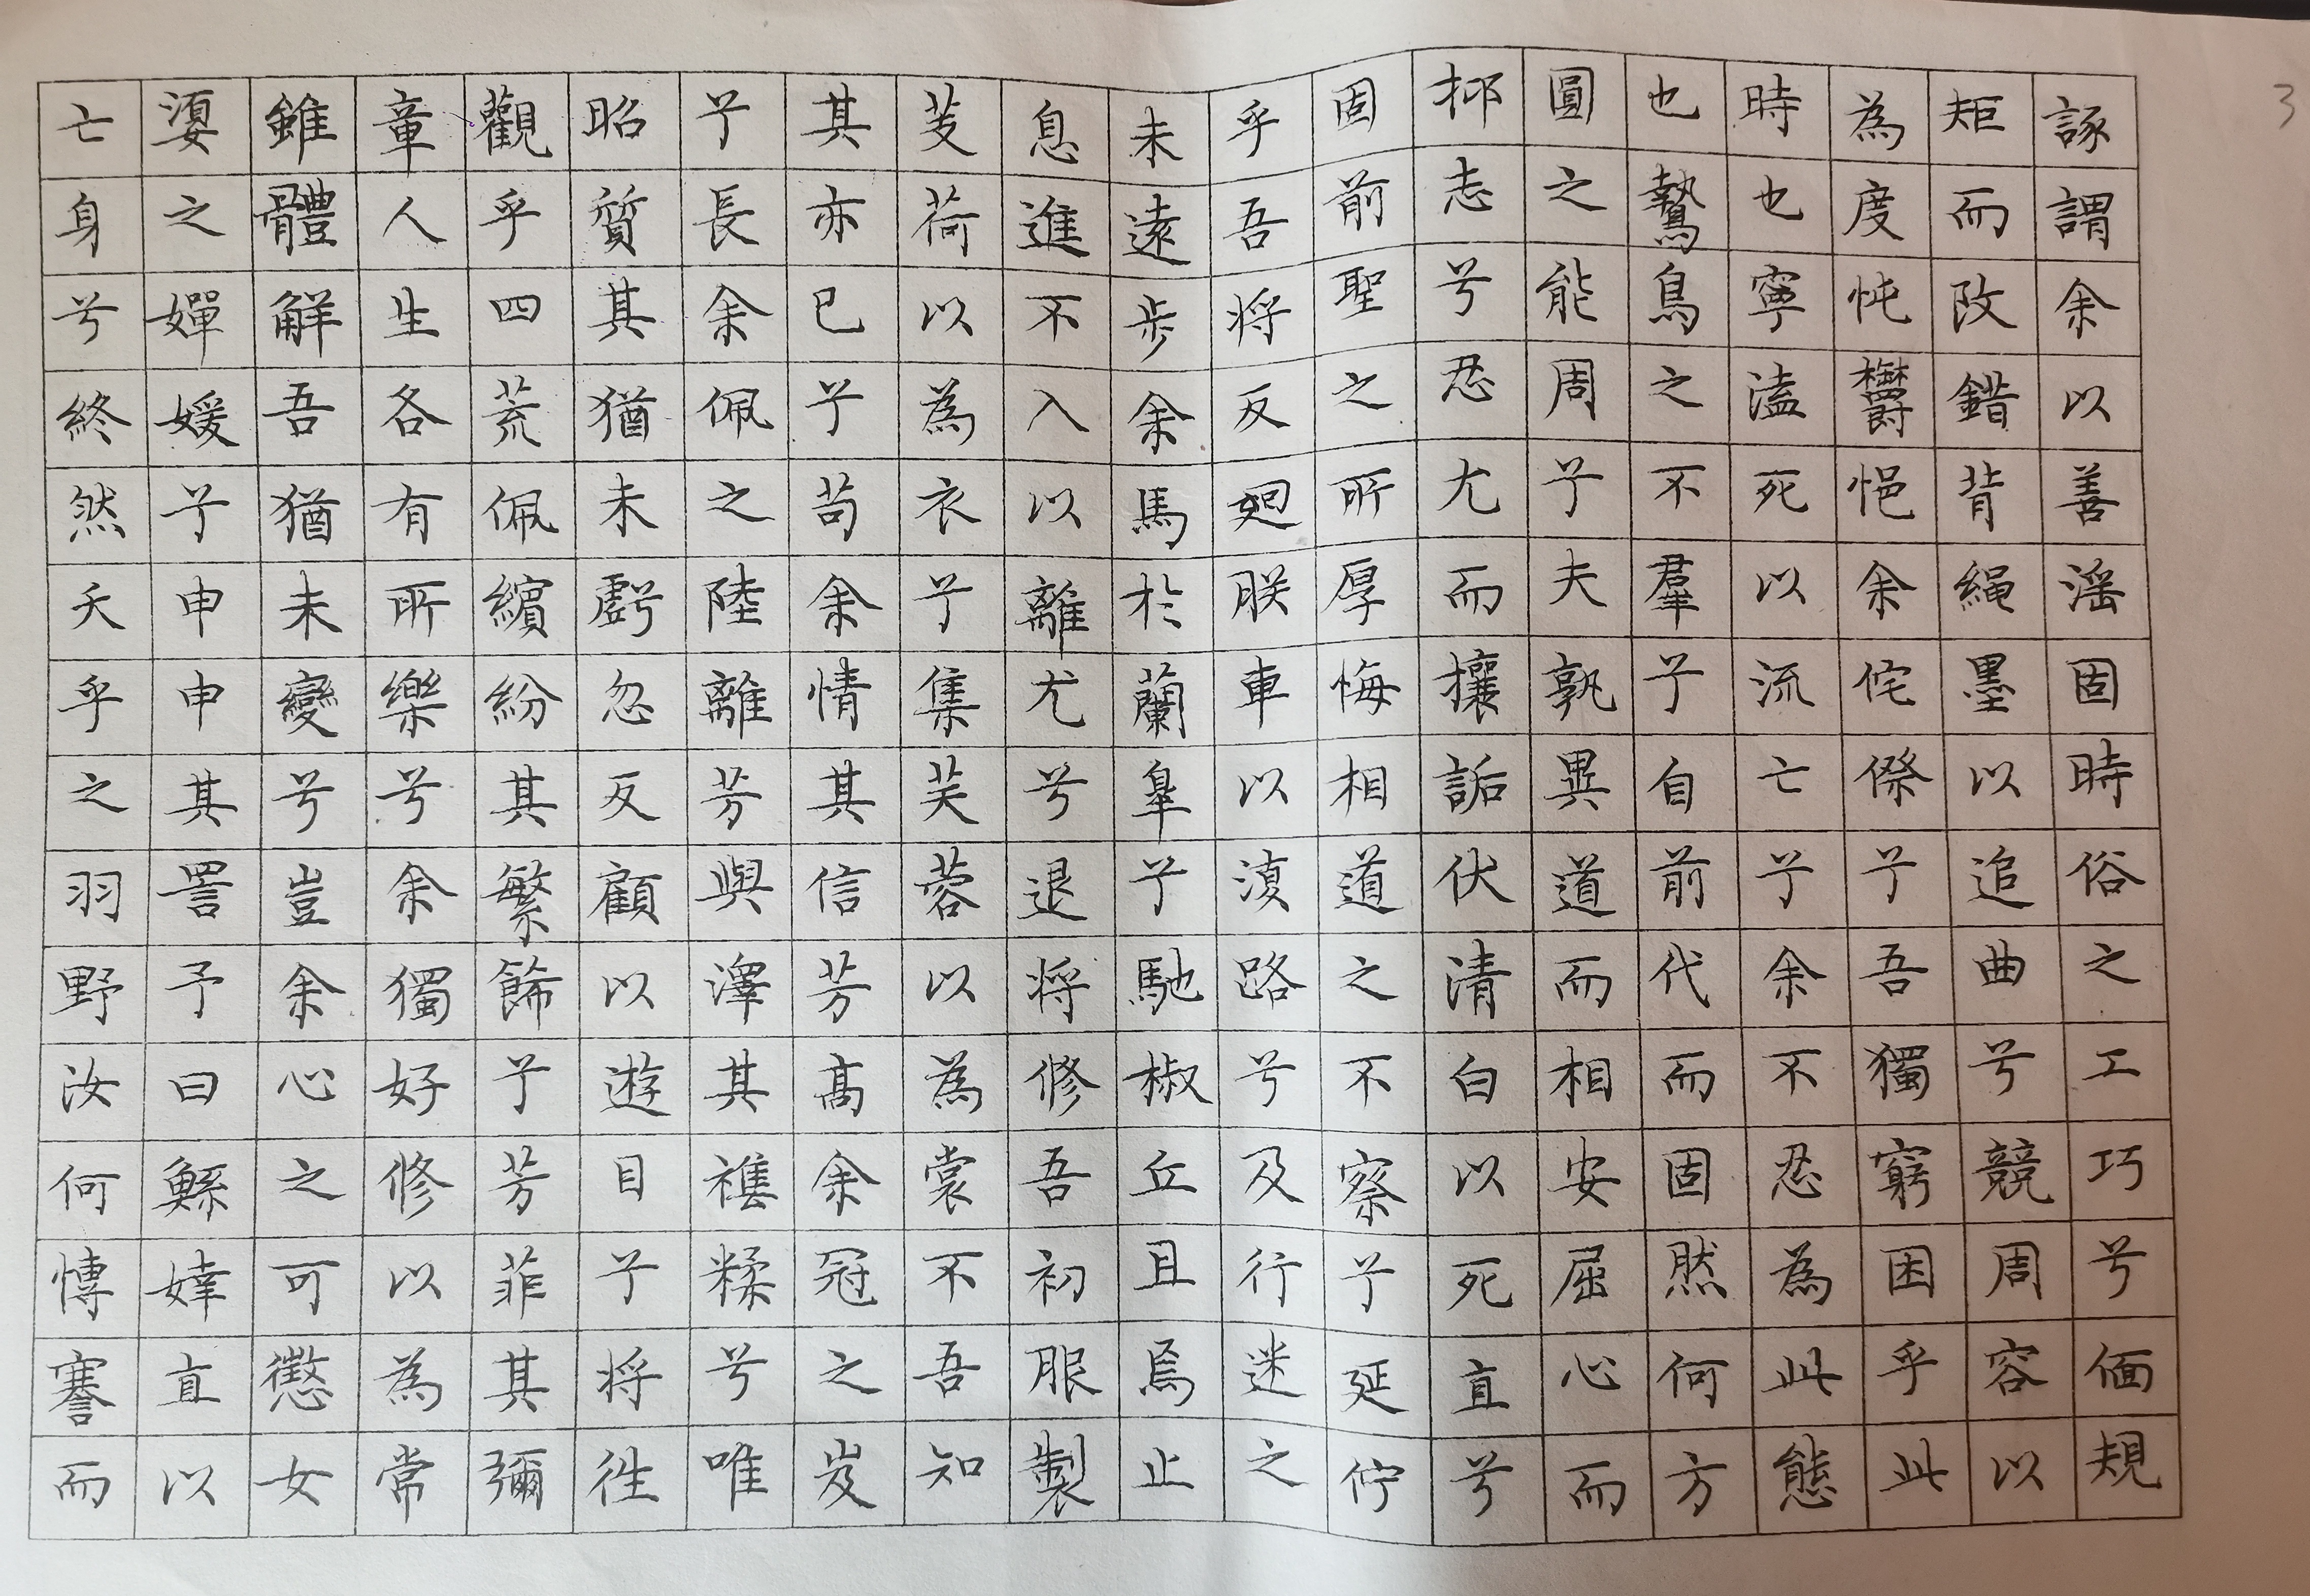 諑謂余以善滛固時俗之工巧兮偭規
矩而改錯背繩墨以追曲兮競周容以
為度忳鬱悒余侘傺兮吾獨窮困乎此
時也寧溘死以流亡兮余不忍為此態
也鷙鳥之不羣兮自前代而固然何方
圓之能周兮夫孰異道而相安屈心而
抑志兮忍尤而攘詬伏清白以死直兮
固前聖之所厚悔相道之不察兮延佇
乎吾将反廻朕車以復路兮及行迷之
未遠步余馬於蘭皐兮馳椒丘且焉止
息進不入以離尤兮退将修吾初服製
芰荷以為衣兮集芙蓉以為裳不吾知
其亦已兮苟余情其信芳高余冠之岌
兮長余佩之陸離芳與澤其襍糅兮唯
昭質其猶未虧忽反顧以遊目兮将往
觀乎四荒佩繽紛其繁飾兮芳菲其彌
章人生各有所樂兮余獨好修以為常
雖體解吾猶未變兮豈余心之可懲女
嬃之嬋媛兮申申其詈予曰鯀婞直以
亡身兮終然夭乎之羽野汝何博謇而
3